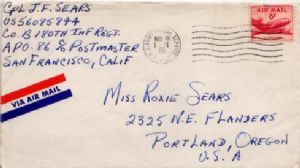 CPL J.F. SEARS
US56085844
CO. B 180TH INF REGT.
APO. 86 % POSTMASTER
SAN FRANCISCO, CALIF
AIR MAIL
6¢
VIA AIR MAIL
MISS ROXIE SEARS
2325 N.E. FLANDERS
PORTLAND, OREGON
U.S.A